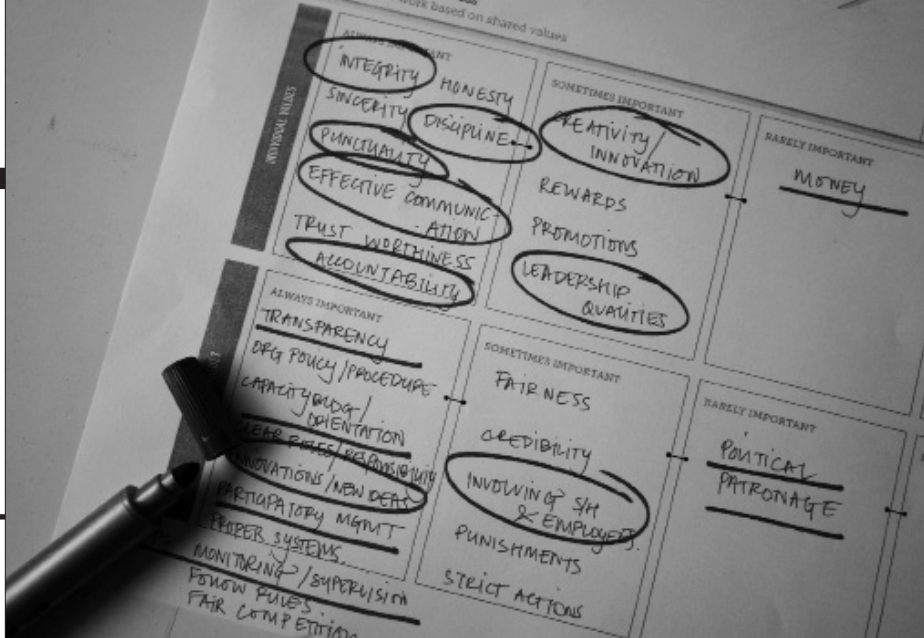 work based on shared values
INDIVIDUAL VALUES
ALWAYS IMPORTANT
INTEGRITY
HONESTY
SINCERITY
DISCIPLINE
PUNCTUALITY
EFFECTIVE COMMUNIC-
-ATION
TRUST WORTHINESS
ACCOUNTABILITY
SOMETIMES IMPORTANT
CREATIVITY/
INNOVATION
REWARDS
PROMOTIONS
LEADERSHIP
QUALITIES
RARELY IMPORTANT
MONEY
ALWAYS IMPORTANT
TRANSPARENCY
ORG POLICY/PROCEDURE
CAPACITY BLDG/
ORIENTATION
CLEAR ROLES/RESPONSIBILITY
INNOVATIONS/NEW IDEAS
PARTICIPATORY MGMT
PROPER SYSTEMS
MONITORING/SUPERVISION
FOLLOW RULES.
FAIR COMPETITION
SOMETIMES IMPORTANT
FAIRNESS
CREDIBILITY
INVOLVING S/H
& EMPLOYEES.
PUNISHMENTS
STRICT ACTIONS
RARELY IMPORTANT
POLITICAL
PATRONAGE